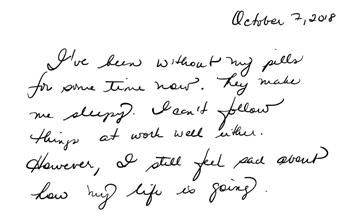 October 7, 2018
I've been without my pills
for some time now. They make
me sleepy. I can't follow
things at work well either.
However, I still feel sad about
how my life is going.